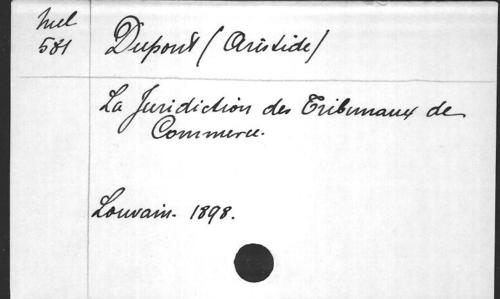 Mel
581
Dupont (Aristide)
La Juridiction des Tribunaux de
Commerce.
Louvain. 1898.